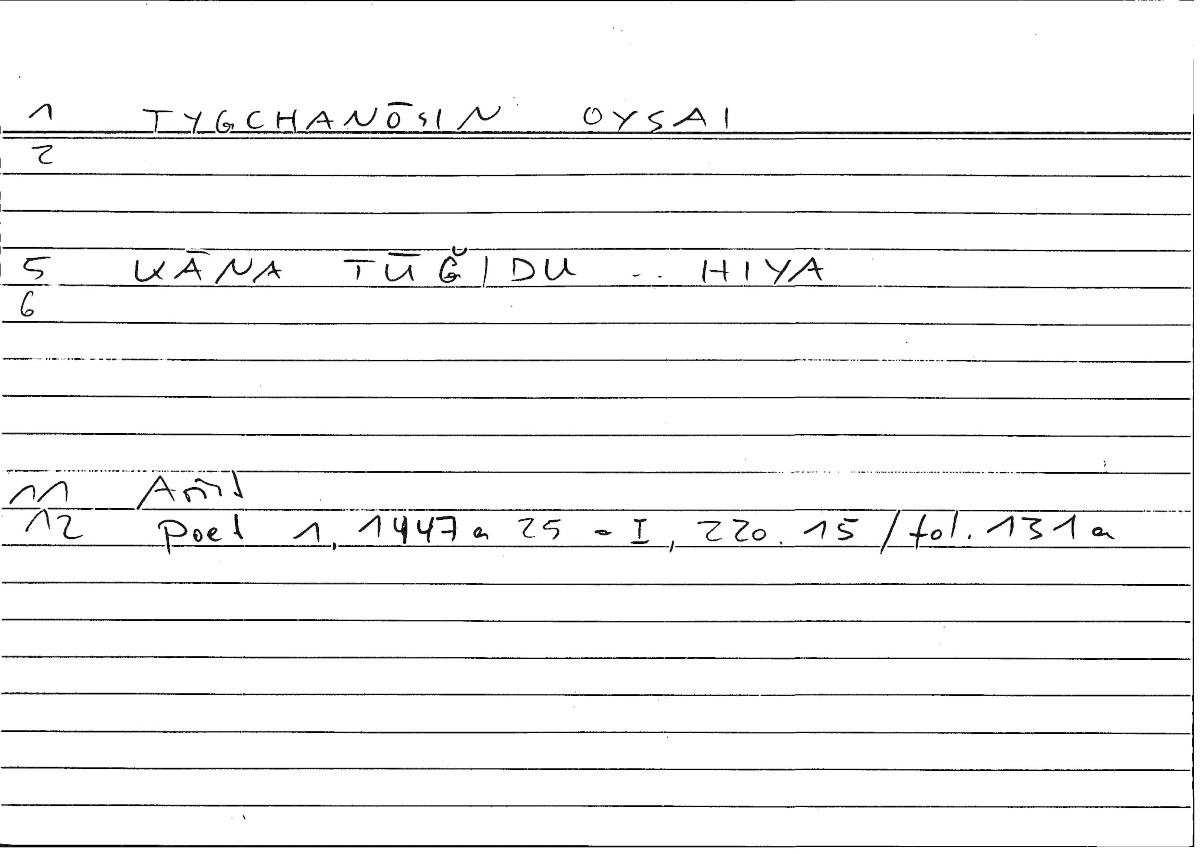 1 TYGCHANŌSIN OYSAI
2
5 KĀNA TŪĞIDU .. HIYA
6
11 Arist
12 Poet 1, 1447a 25 = I, 220.15 / fol. 131a